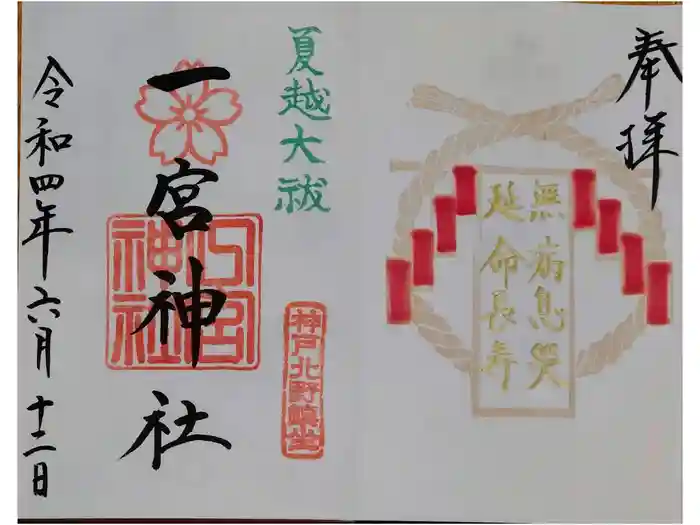 奉拝
無病息災
延命長寿
夏越大祓
神戸北野鎮坐
一宮神社
一宮
神社
令和四年六月十二日